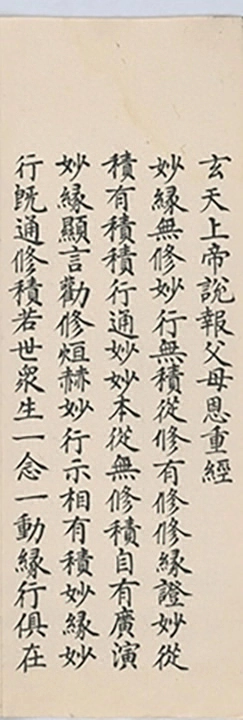 玄天上帝說報父母恩重經
妙緣無修妙行無積從修有修修緣證妙從
積有積積行通妙妙本從無修積自有廣演
妙緣顯言勸修烜赫妙行示相有積妙緣妙
行既通修積若世衆生一念一動緣行俱在